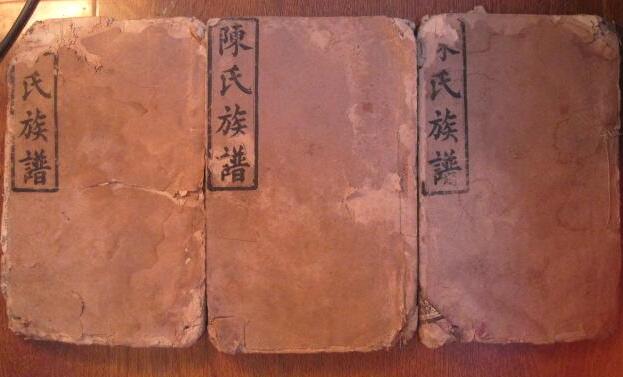 氏族譜
陳氏族譜
氏族譜